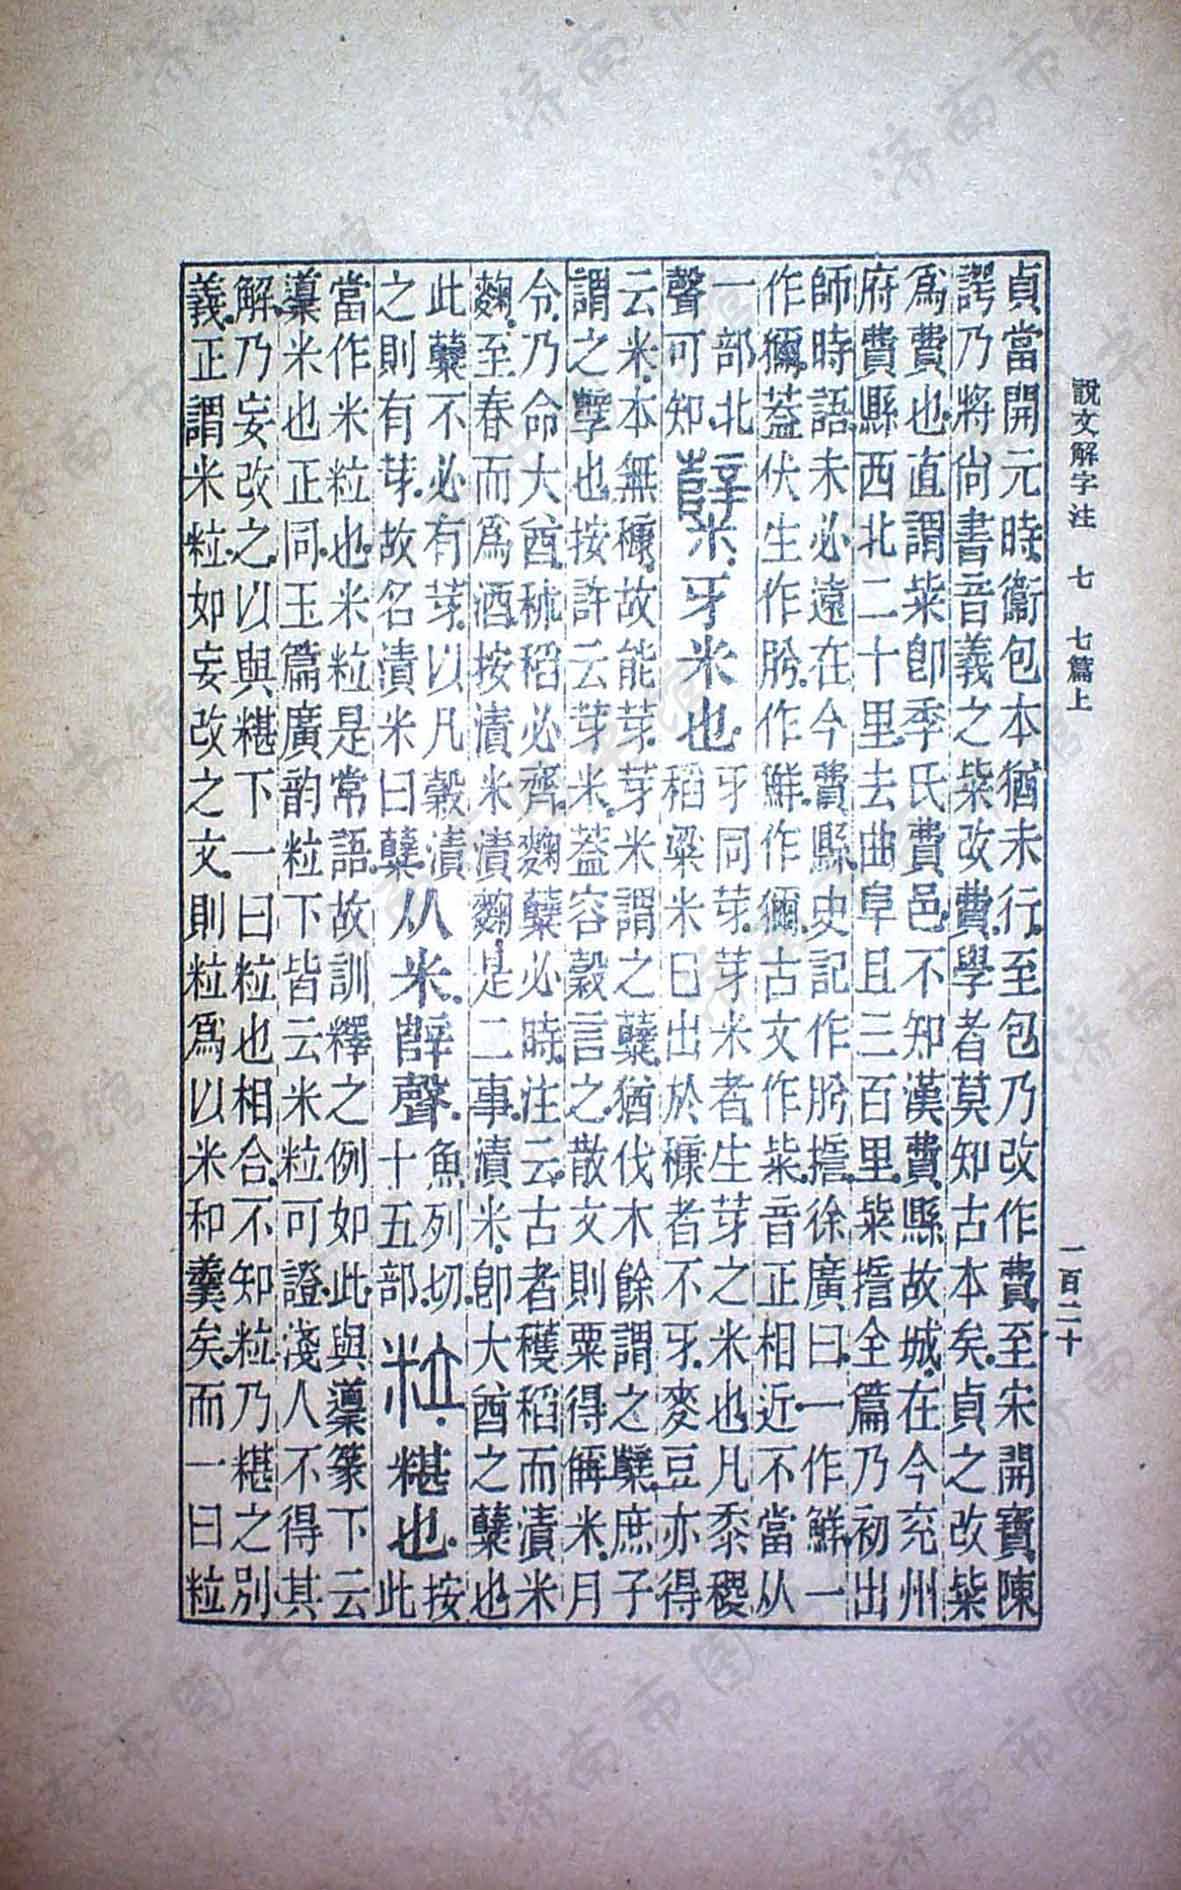 說文解字注 七 七篇上 一百二十
貞當開元時衞包本猶未行至包乃改作費至宋開寶陳
諤乃將尙書音義之粊改費學者莫知古本矣貞之改粊
爲費也直謂粊卽季氏費邑不知漢費縣故城在今兖州
府費縣西北二十里去曲阜且三百里粊誓全篇乃初出
師時語未必遠在今費縣史記作肹誓徐廣曰一作鮮一
作獮葢伏生作肹作鮮作獮古文作粊音正相近不當从
一部北
聲可知
糱牙米也
牙同芽芽米者生芽之米也凡黍稷
稻粱米已出於穅者不牙麥豆亦得
云米本無穅故能芽芽米謂之糱猶伐木餘謂之櫱庶子
謂之孼也按許云芽米葢容穀言之散文則粟得解米月
令乃命大酋秫稻必齊麴糱必時注云古者穫稻而漬米
麴至春而爲酒按漬米漬麴是二事漬米卽大酋之糱也
此糱不必有芽以凡穀漬
之則有芽故名漬米曰糱
从米辥聲
魚列切
十五部
粒糂也
按
此
當作米粒也米粒是常語故訓釋之例如此與䆃篆下云
䆃米也正同玉篇廣韵粒下皆云米粒可證淺人不得其
解乃妄改之以與糂下一曰粒也相合不知粒乃糂之別
義正謂米粒如妄改之文則粒爲以米和羹矣而一曰粒
济南市图书馆